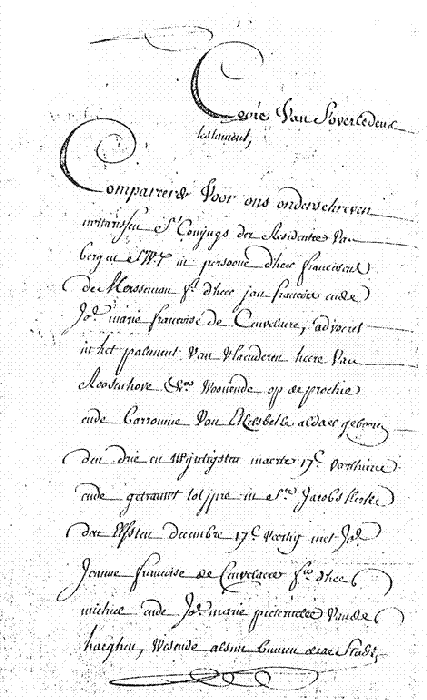 Copie Van S'overledens
testament,
Compareerde Voor ons onderschreven
notarissen S. Conjugs der Residentie Van
bergen in persoone d'heer franciscus
de Messeman fs d'heer jan francois ende
Joe marie francoise de Cuvelaere, advocaet
in het parlement Van Vlaenderen heere Van
Roosenhove Woonende op de prochie
ende Baronnie Van Esquelbeke aldaer geboren
den drie en twijntigsten maerte 17C
ende getrauwt tot jpre in Ste Jacobs kerke
den Elfsten decembre 17C Veertig met Joe
Jenne francoise de Cuvelaere fa d'heer
michiel ende Joe marie pieternelle Vander
haeghen, Wesende alsnu binnen deser Stadt,